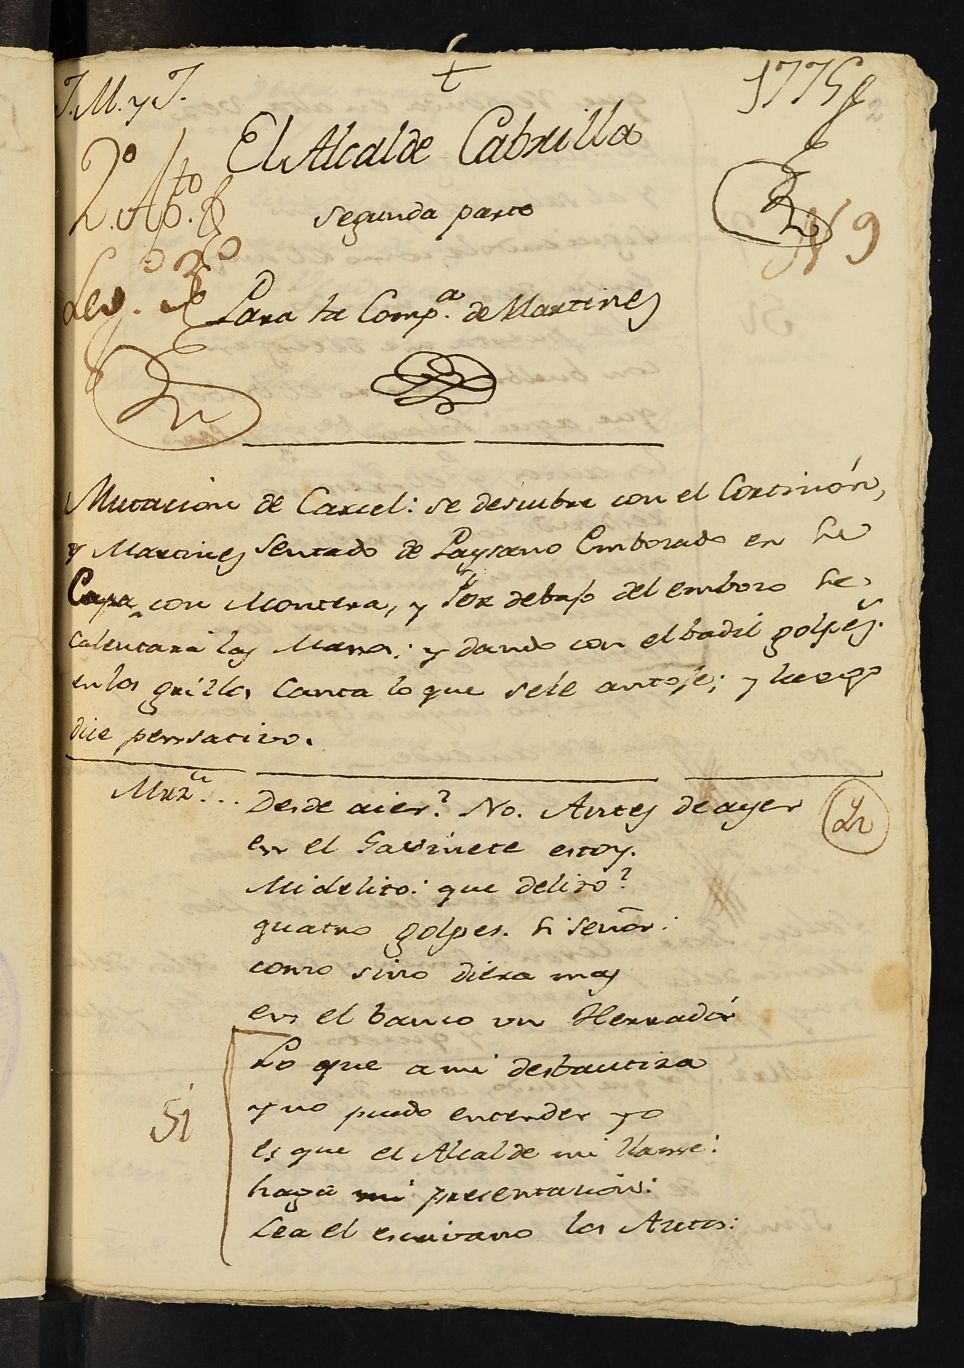 J. M. y J.
1775
El Alcalde Cabrilla
2.º Apto.
Segunda parte
N 9
Leg.º 3º
Para la Comp.ª de Martinez
Mutacion de Carcel: se descubre con el Cortinón,
y Martinez Sentado de Paysano Embozado en su
Capa con Montera, y Por debajo del embozo se
calentará las Manos: y dando con el badil golpes
en los grillos Canta lo que sele antoje; y luego
dice pensativo.
Mrz... Desde aier? No. Antes de ayer
en el Gavinete estoy.
Mi delito: que delito?
quatro golpes. si señor:
como sino diera mas
en el banco un Herradór
Lo que a mi desbautiza
y no puedo entender yo
Si
es que el Alcalde mi llame:
haga mi presentacion:
Lea el escrivano los Autos: